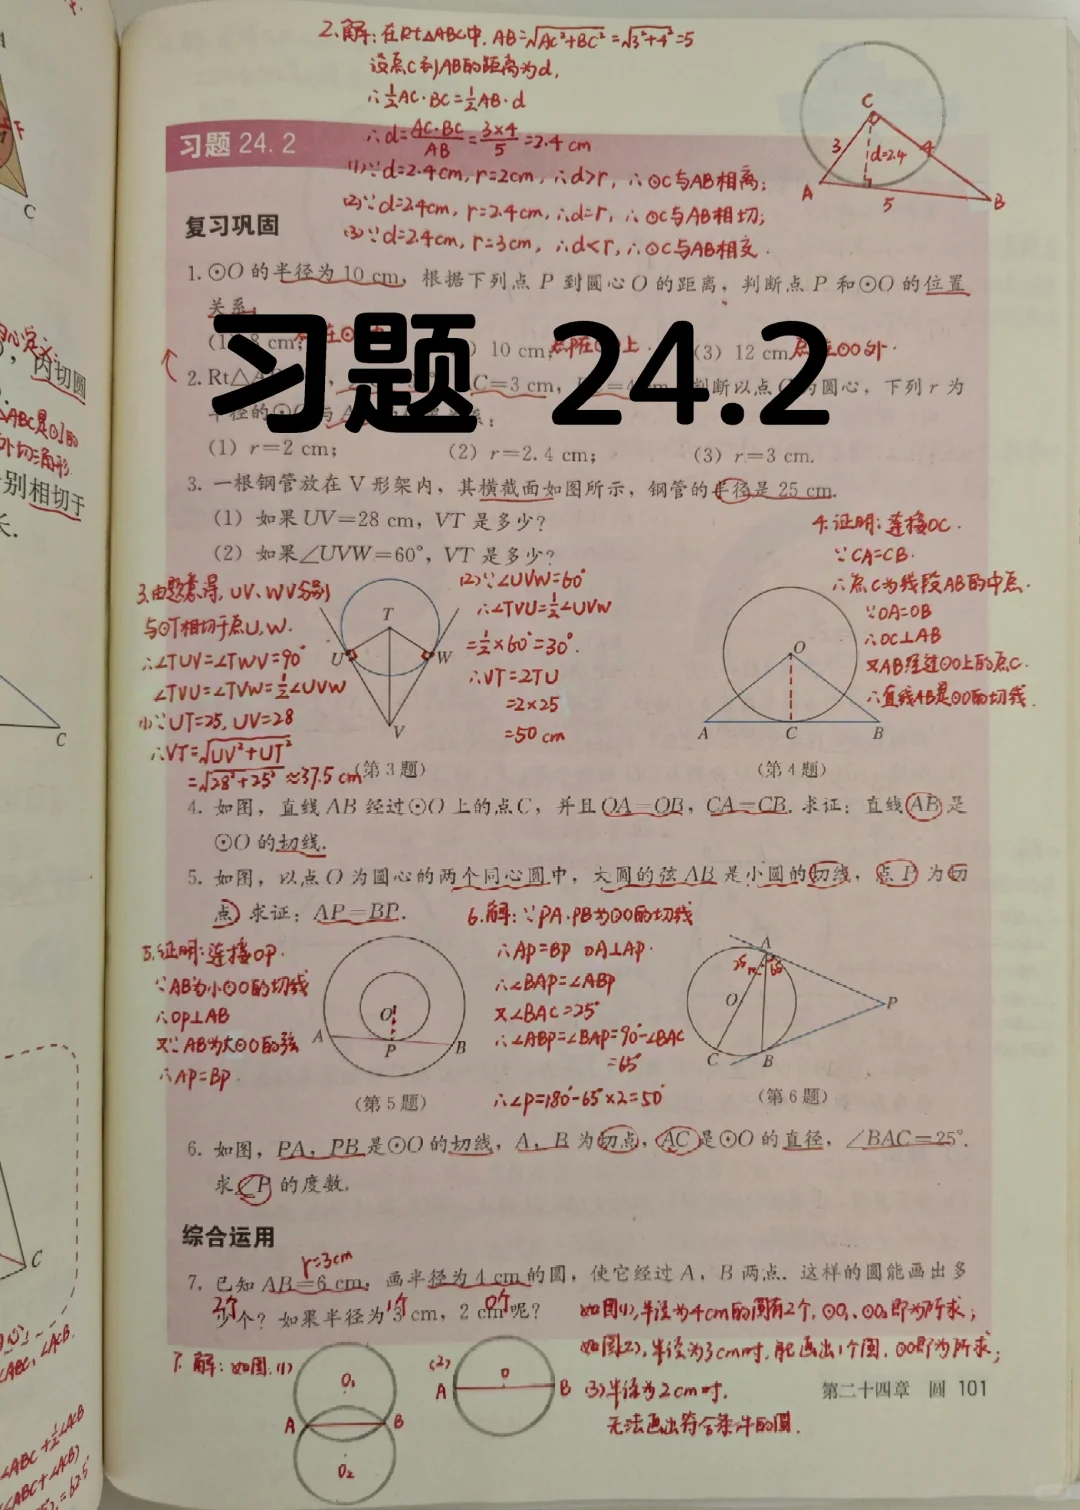 2.解:在Rt△ABC中,AB=√AC²+BC²=√3²+4²=5
设点C到AB的距离为d,
∴½AC·BC=½AB·d
∴d=AC·BC/AB=3×4/5=2.4cm
(1)∵d=2.4cm,r=2cm,∴d>r,∴⊙C与AB相离;
(2)∵d=2.4cm,r=2.4cm,∴d=r,∴⊙C与AB相切;
(3)∵d=2.4cm,r=3cm,∴d<r,∴⊙C与AB相交.
C
3
d=2.4
4
A
5
B
习题 24.2
复习巩固
1. ⊙O 的半径为 10 cm,根据下列点 P 到圆心 O 的距离,判断点 P 和⊙O 的位置
关系:
习题 24.2
8 cm;
10 cm;
(3) 12 cm
2. Rt△
C=3 cm,
判断以点
为圆心,下列 r 为
半径的
(1) r=2 cm;
(2) r=2.4 cm;
(3) r=3 cm.
3. 一根钢管放在 V 形架内,其横截面如图所示,钢管的半径是 25 cm.
(1) 如果 UV=28 cm,VT 是多少?
(2) 如果∠UVW=60°,VT 是多少?
3.由题意得,UV、WV分别
与⊙T相切于点U,W.
∴∠TUV=∠TWV=90°
∠TVU=∠TVW=½∠UVW
(1)∵UT=25,UV=28
∴VT=√UV²+UT²
=√28²+25²≈37.5cm
T
U
W
V
(第 3 题)
(2)∵∠UVW=60°
∴∠TVU=½∠UVW
=½×60°=30°.
∴VT=2TU
=2×25
=50cm
4.证明:连接OC.
∵CA=CB.
∴点C为线段AB的中点.
∵OA=OB
∴OC⊥AB
又AB经过⊙O上的点C.
∴直线AB是⊙O的切线.
O
A
C
B
(第 4 题)
4. 如图,直线 AB 经过⊙O 上的点 C,并且 OA=OB,CA=CB. 求证:直线 AB 是
⊙O 的切线.
5. 如图,以点 O 为圆心的两个同心圆中,大圆的弦 AB 是小圆的切线,点 P 为切
点. 求证:AP=BP.
5.证明:连接OP.
∵AB为小⊙O的切线
∴OP⊥AB
又∵AB为大⊙O的弦
∴AP=BP.
O
A
P
B
(第 5 题)
6.解:∵PA、PB为⊙O的切线
∴AP=BP OA⊥AP.
∴∠BAP=∠ABP
又∠BAC=25°
∴∠ABP=∠BAP=90°-∠BAC
=65°
∴∠P=180°-65°×2=50°
A
25°
65°
O
P
C
B
(第 6 题)
6. 如图,PA,PB 是⊙O 的切线,A,B 为切点,AC 是⊙O 的直径,∠BAC=25°.
求∠P 的度数.
综合运用
r=3cm
7. 已知 AB=6 cm,画半径为 4 cm 的圆,使它经过 A,B 两点. 这样的圆能画出多
少个?如果半径为 3 cm,2 cm 呢?
2个
1个
0个
如图(1),半径为4cm的圆有2个,⊙O₁、⊙O₂即为所求;
如图(2),半径为3cm时,能画出1个圆,⊙O即为所求;
(3)半径为2cm时,
无法画出符合条件的圆.
7.解:如图.(1)
O₁
A
B
O₂
(2)
A
O
B
第二十四章 圆 101